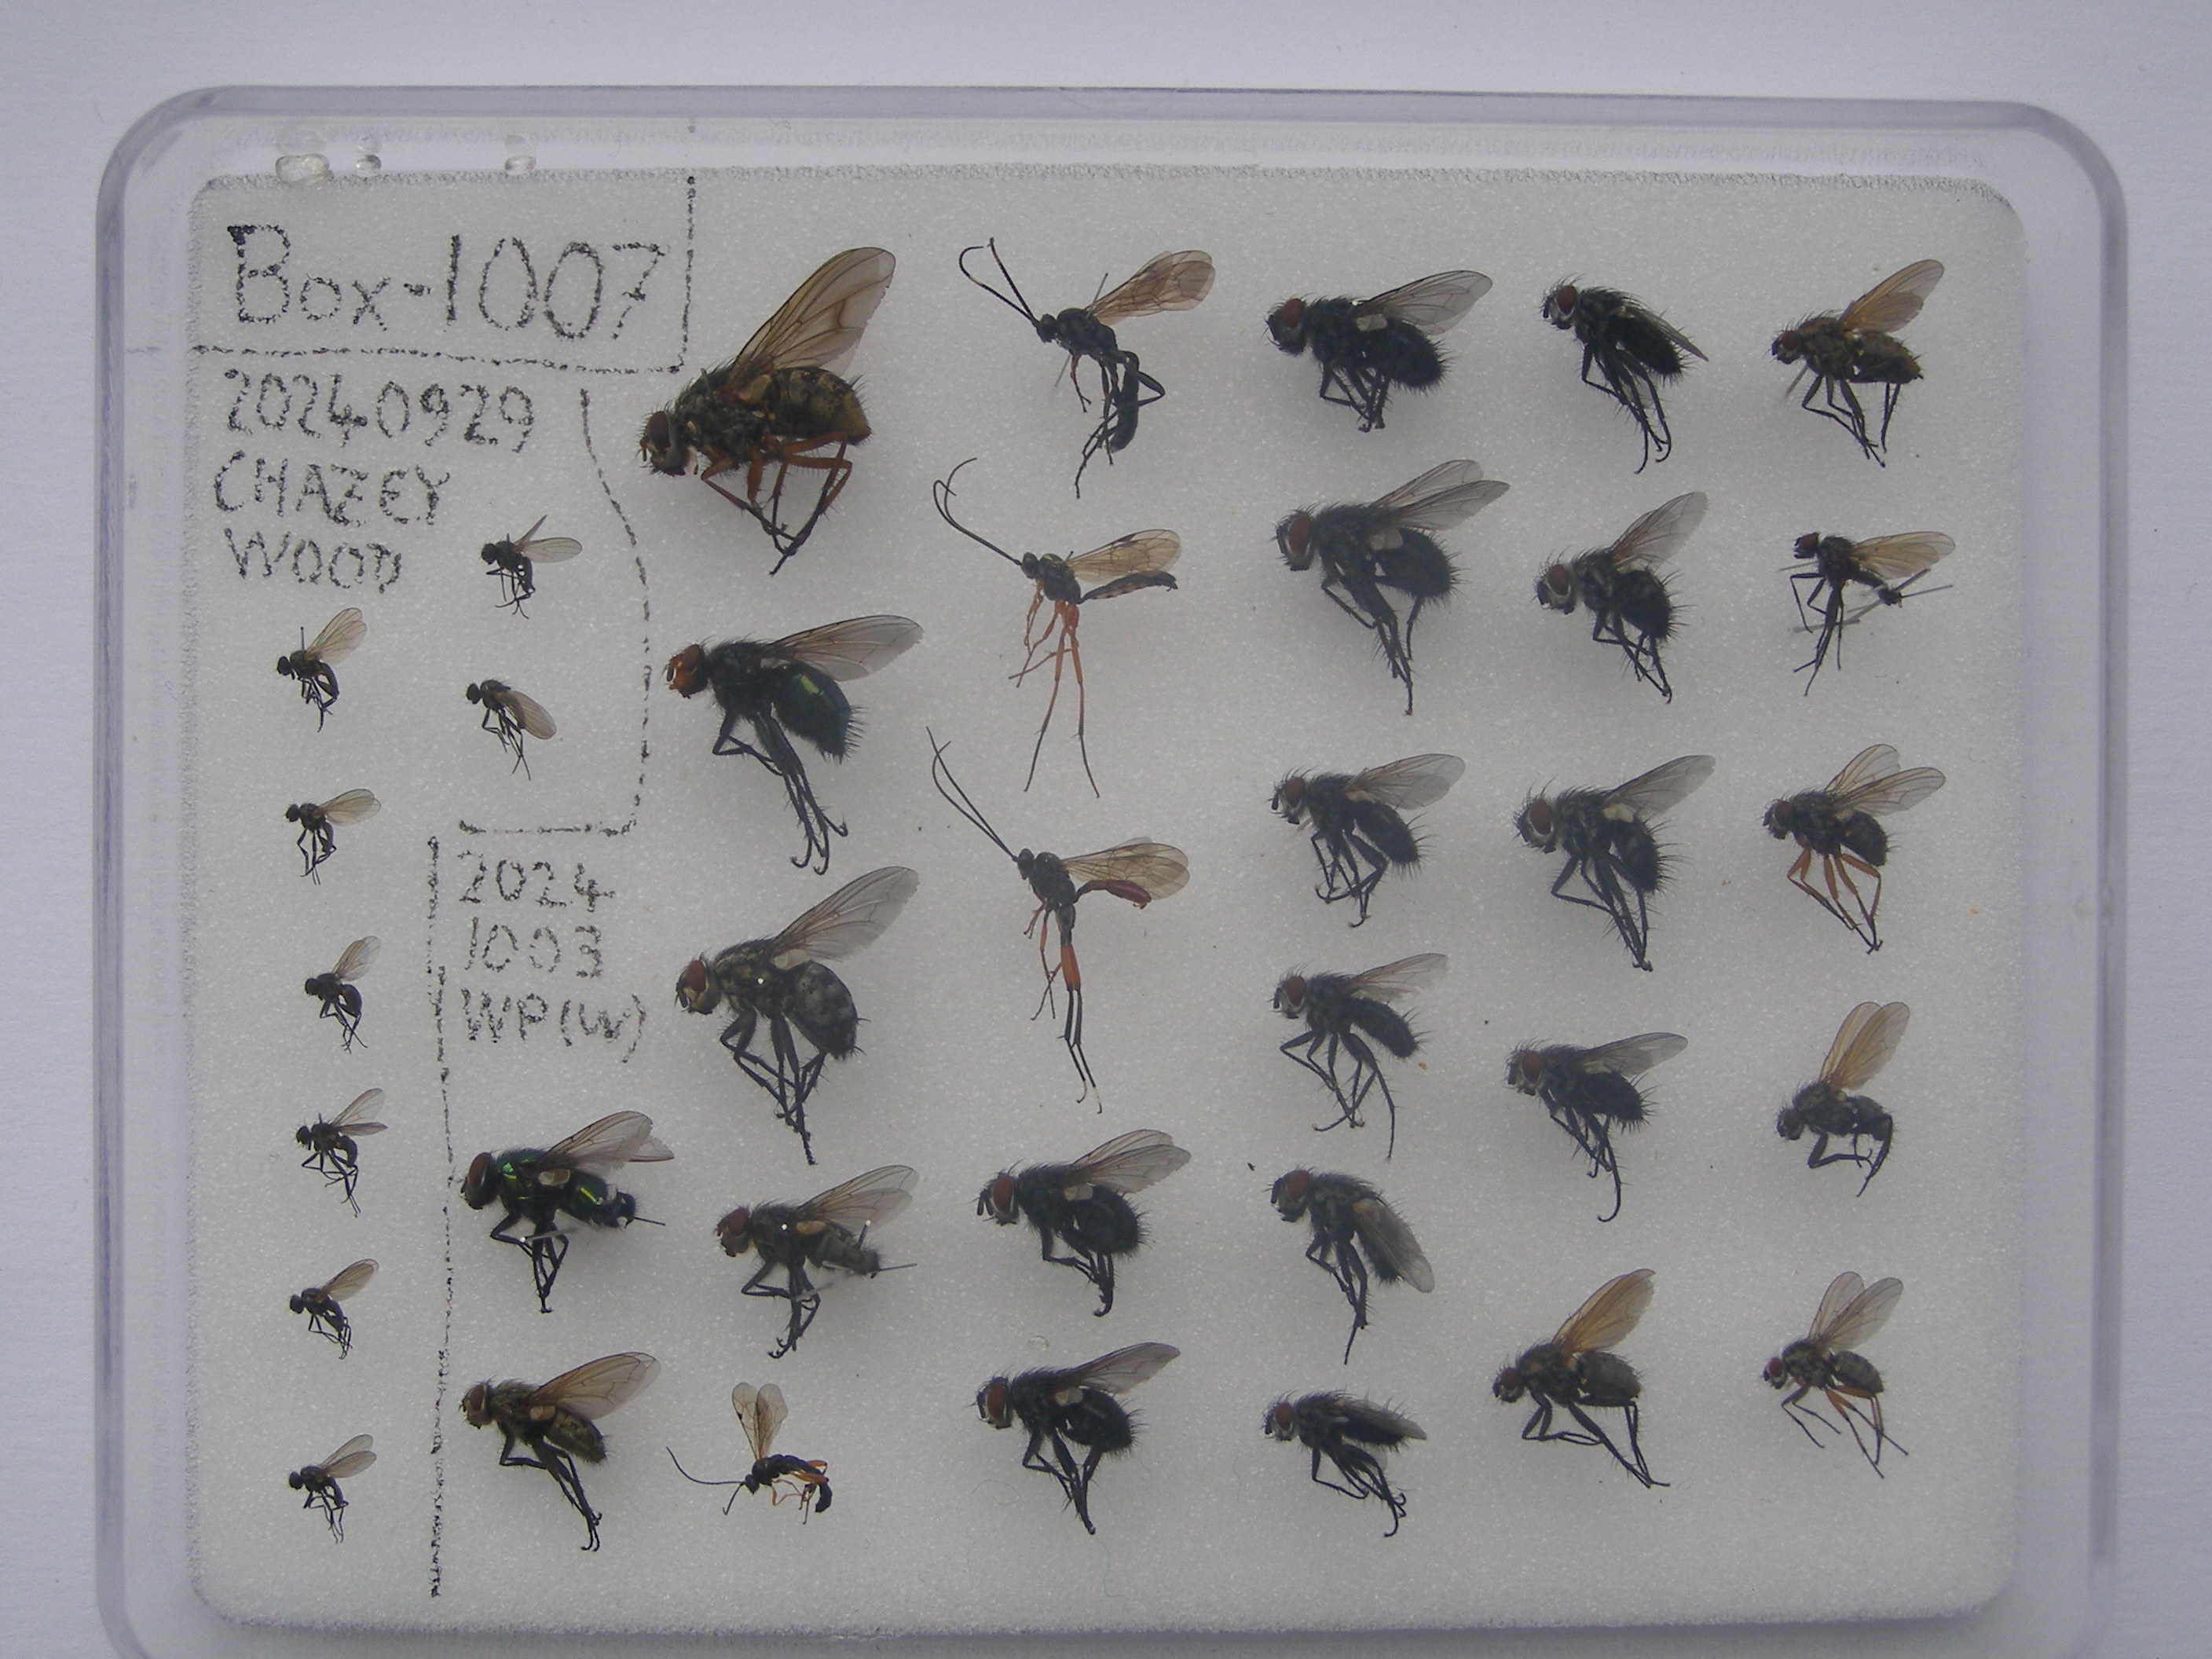 Box-1007
20240929
CHAZEY
WOOD
2024
1003
WP(W)